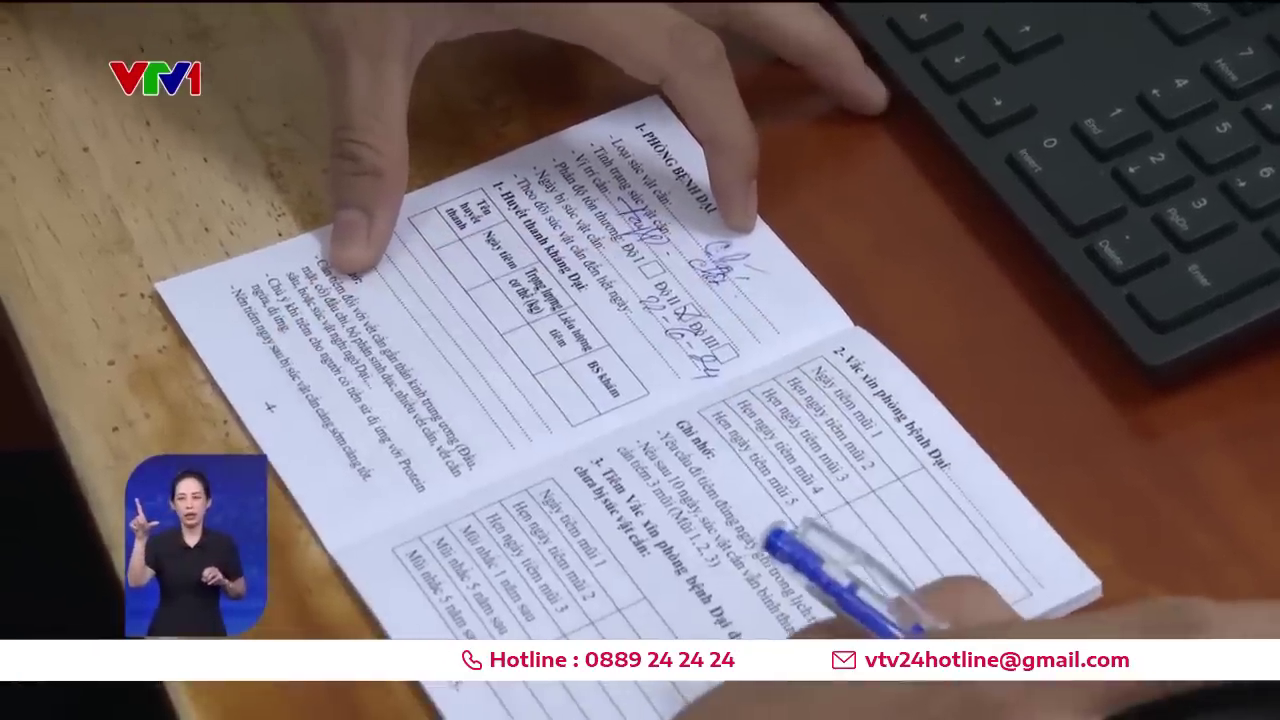 VTV1
1- PHÒNG BỆNH DẠI
- Loại súc vật cắn: Chó
- Tình trạng súc vật cắn:
- Vị trí cắn:
- Phân độ tổn thương: Độ I Độ II Độ III
- Ngày bị súc vật cắn: 22-6-24
- Theo dõi súc vật cắn đến hết ngày
1- Huyết thanh kháng Dại:
Tên huyết thanh
Ngày tiêm
Trọng lượng cơ thể (kg)
Liều lượng tiêm
BS khám
- Cần tiêm đối với vết cắn gần thần kinh trung ương (Đầu,
mặt, cổ) đầu chi, bộ phận sinh dục, nhiều vết cắn, vết cắn
sâu, hoặc súc vật nghi ngờ Dại...
- Chú ý khi tiêm cho người có tiền sử dị ứng với Protein
ngựa, dị ứng
- Nên tiêm ngay sau bị súc vật cắn càng sớm càng tốt.
4
2- Vắc xin phòng bệnh Dại:
Ngày tiêm mũi 1
Hẹn ngày tiêm mũi 2
Hẹn ngày tiêm mũi 3
Hẹn ngày tiêm mũi 4
Hẹn ngày tiêm mũi 5
Ghi nhớ:
- Yêu cầu đi tiêm đúng ngày ghi trong lịch
- Nếu sau 10 ngày, súc vật cắn vẫn bình
cần tiêm 3 mũi (Mũi 1, 2, 3)
3- Tiêm Vắc xin phòng bệnh Dại
chưa bị súc vật cắn:
Ngày tiêm mũi 1
Hẹn ngày tiêm mũi 2
Hẹn ngày tiêm mũi 3
Mũi nhắc 1 năm sau
Mũi nhắc 5 năm sau
Mũi nhắc 5 năm
7
Home
4
5
6
1
End
2
3
PgDn
0
Insert
Delete
Enter
Hotline : 0889 24 24 24
vtv24hotline@gmail.com